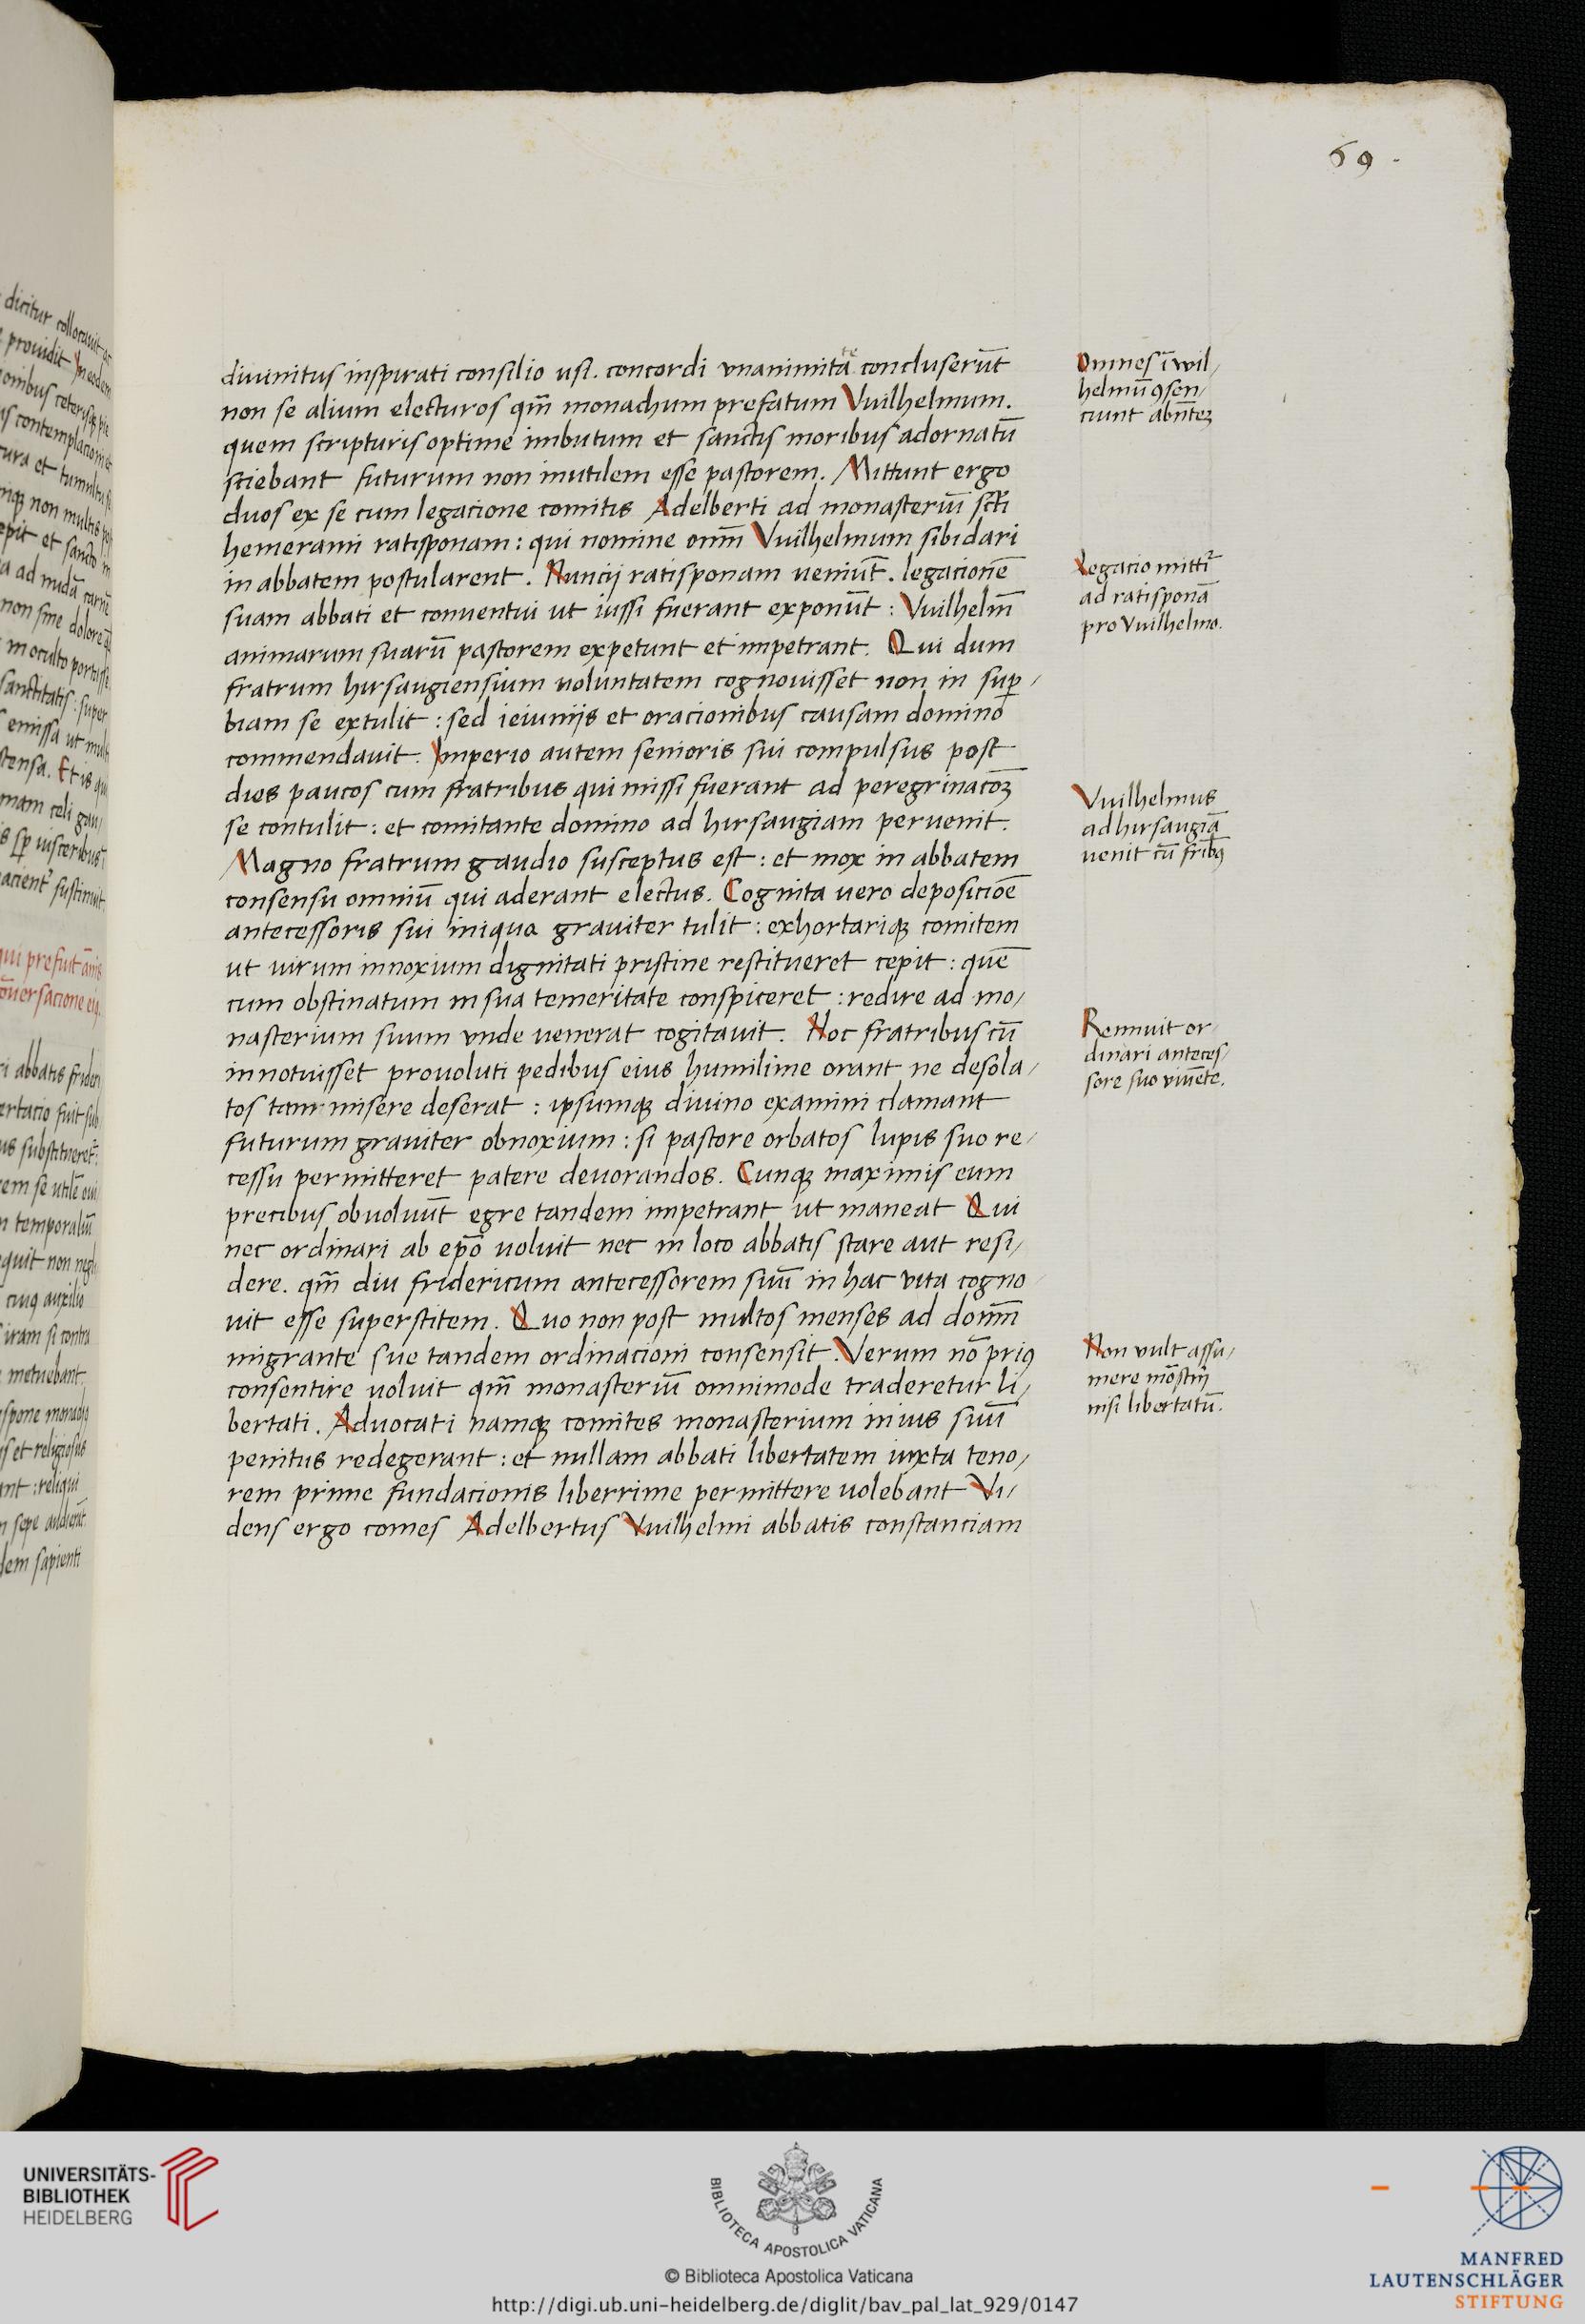 69.
diuinitus inspirati consilio vsi. concordi vnanimitãte concluserũt
non se alium electuros qm̃ monachum prefatum Vuilhelmum.
quem scripturis optime imbutum et sanctis moribus adornatũ
sciebant futurum non inutilem esse pastorem. Mittunt ergo
duos ex se cum legacione comitis Adelberti ad monasteriũ scti
hemerami ratisponam: qui nomine om̃ Vuilhelmum sibi dari
in abbatem postularent. Nuncij ratisponam ueniũt. legacionẽ
suam abbati et conuentui ut iussi fuerant exponũt: Vuilhelm̃
animarum suarũ pastorem expetunt et impetrant. Qui dum
fratrum hirsaugiensium uoluntatem cognouisset non in sup̱/
biam se extulit: sed ieiunijs et oracionibus causam domino
commendauit. Imperio autem senioris sui compulsus post
dies paucos cum fratribus qui missi fuerant ad peregrinacõꝫ
se contulit: et comitante domino ad hirsaugiam peruenit.
Magno fratrum gaudio susceptus est: et mox in abbatem
consensu omniũ qui aderant electus. Cognita uero deposicionẽ
antecessoris sui iniqua grauiter tulit: exhortariqꝫ comitem
ut uirum innoxium dignitati pristine restitueret cepit: quẽ
cum obstinatum in sua temeritate conspiceret: redire ad mo/
nasterium suum vnde uenerat cogitauit. Hoc fratribus cũ
innotuisset prouoluti pedibus eius humilime orant ne desola/
tos tam misere deserat: ipsumqꝫ diuino examini clamant
futurum grauiter obnoxium: si pastore orbatos lupis suo re/
cessu permitteret patere deuorandos. Cunqꝫ maximis eum
precibus obuoluũt egre tandem impetrant ut maneat Qui
nec ordinari ab ep̃o uoluit nec in loco abbatis stare aut resi/
dere. qm̃ diu fridericum antecessorem suũ in hac vita cogno
uit esse superstitem. Quo non post multos menses ad dom̃m
migrante sue tandem ordinacioni consensit. Verum nõ priꝰ
consentire uoluit qm̃ monasteriũ omnimode traderetur li/
bertati. Aduocati namqꝫ comites monasterium in ius suũ
penitus redegerant: et nullam abbati libertatem iuxta teno/
rem prime fundacionis liberrime permittere uolebant Vi/
dens ergo comes Adelbertus Vuilhelmi abbatis constanciam
Omnes ĩ wil/
helmũ ꝯsen/
ciunt abñteꝫ
Legacio mittit᷑
ad ratisponã
pro Vuilhelmo.
Vuilhelmus
ad hirsaugiã
uenit cũ frib̃ꝰ
Rennuit or
dinari anteces/
sore suo viuẽte.
Non vult assu/
mere mõstr̃ij
nisi libertatũ.
UNIVERSITÄTS-
BIBLIOTHEK
HEIDELBERG
BIBLIOTECA APOSTOLICA VATICANA
© Biblioteca Apostolica Vaticana
http://digi.ub.uni-heidelberg.de/diglit/bav_pal_lat_929/0147
MANFRED
LAUTENSCHLÄGER
STIFTUNG